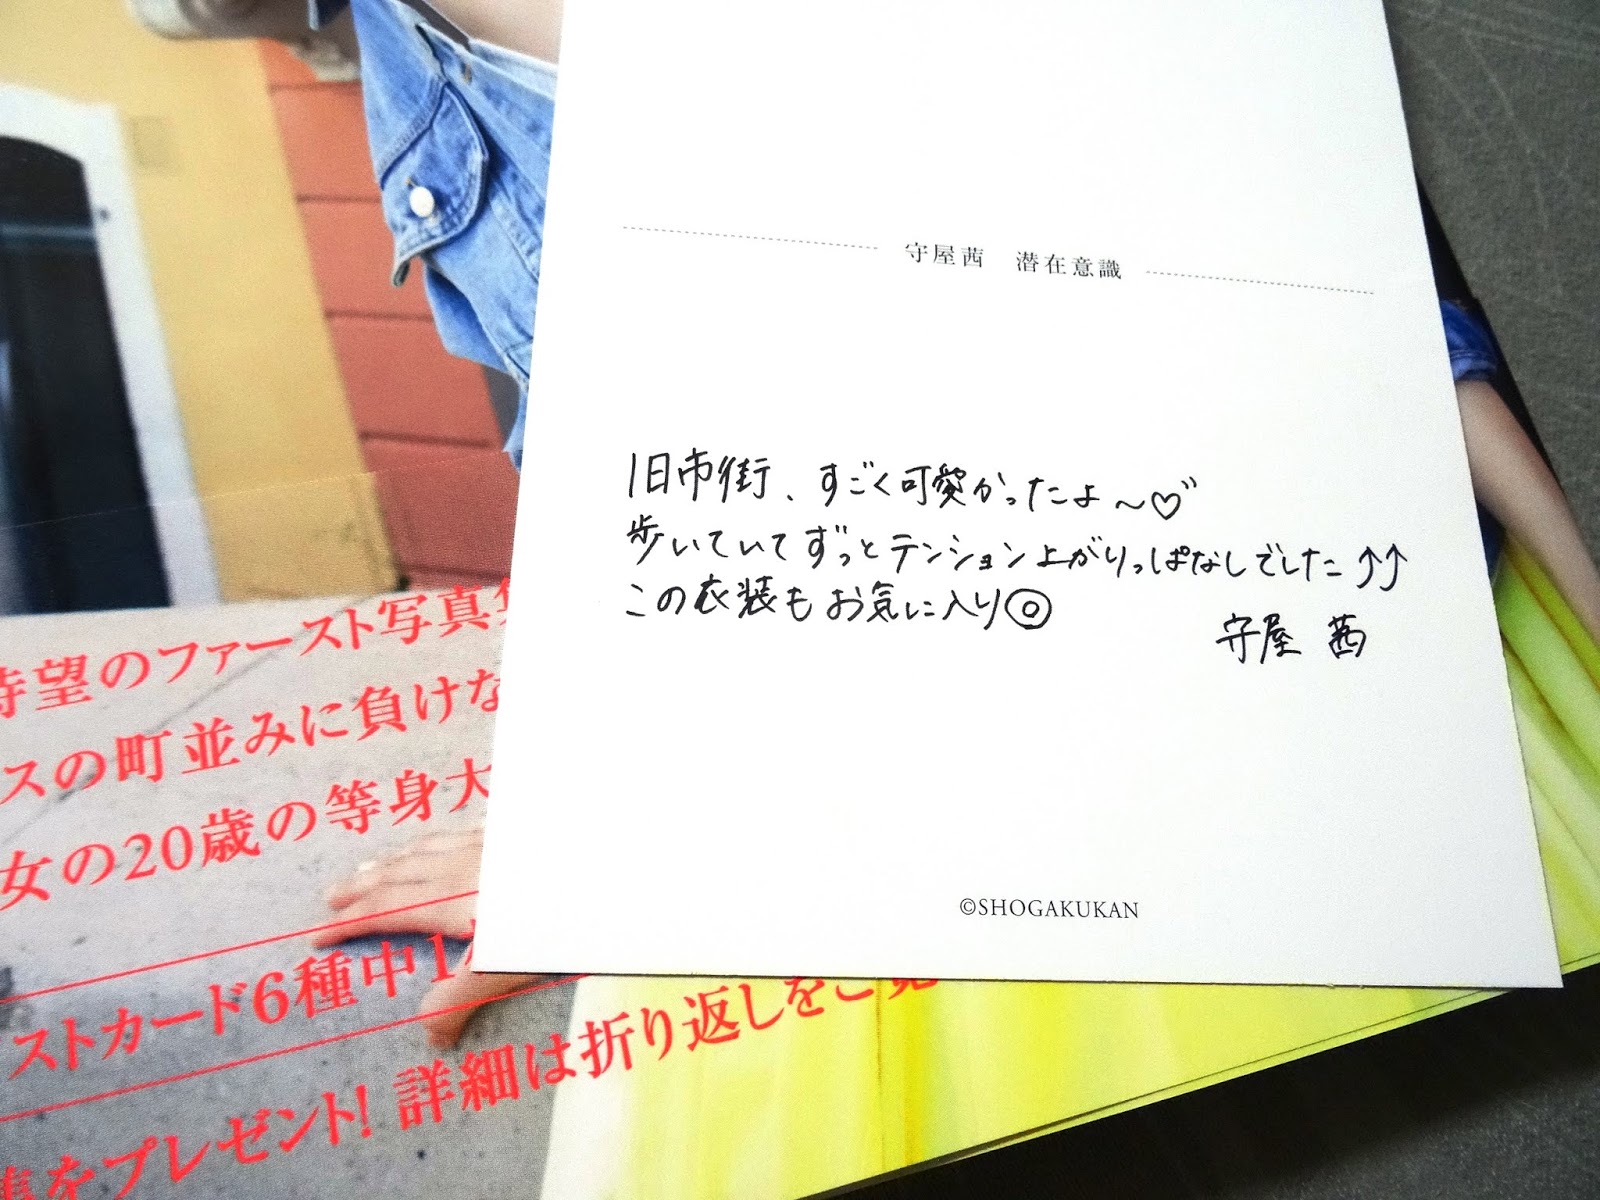 守屋茜　潜在意識
旧市街、すごく可愛かったよ～♡
歩いていてずっとテンション上がりっぱなしでした↑↑
この衣装もお気に入り◎
守屋 茜
©SHOGAKUKAN
待望のファースト写真集
スの町並みに負けな
女の20歳の等身大
ストカード6種中1
をプレゼント! 詳細は折り返しをご